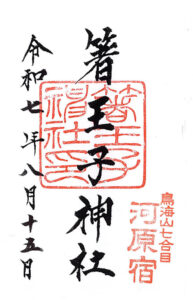 鳥海山七合目
河原宿
箸王子神社
箸王子
神社印
令和七年八月十五日